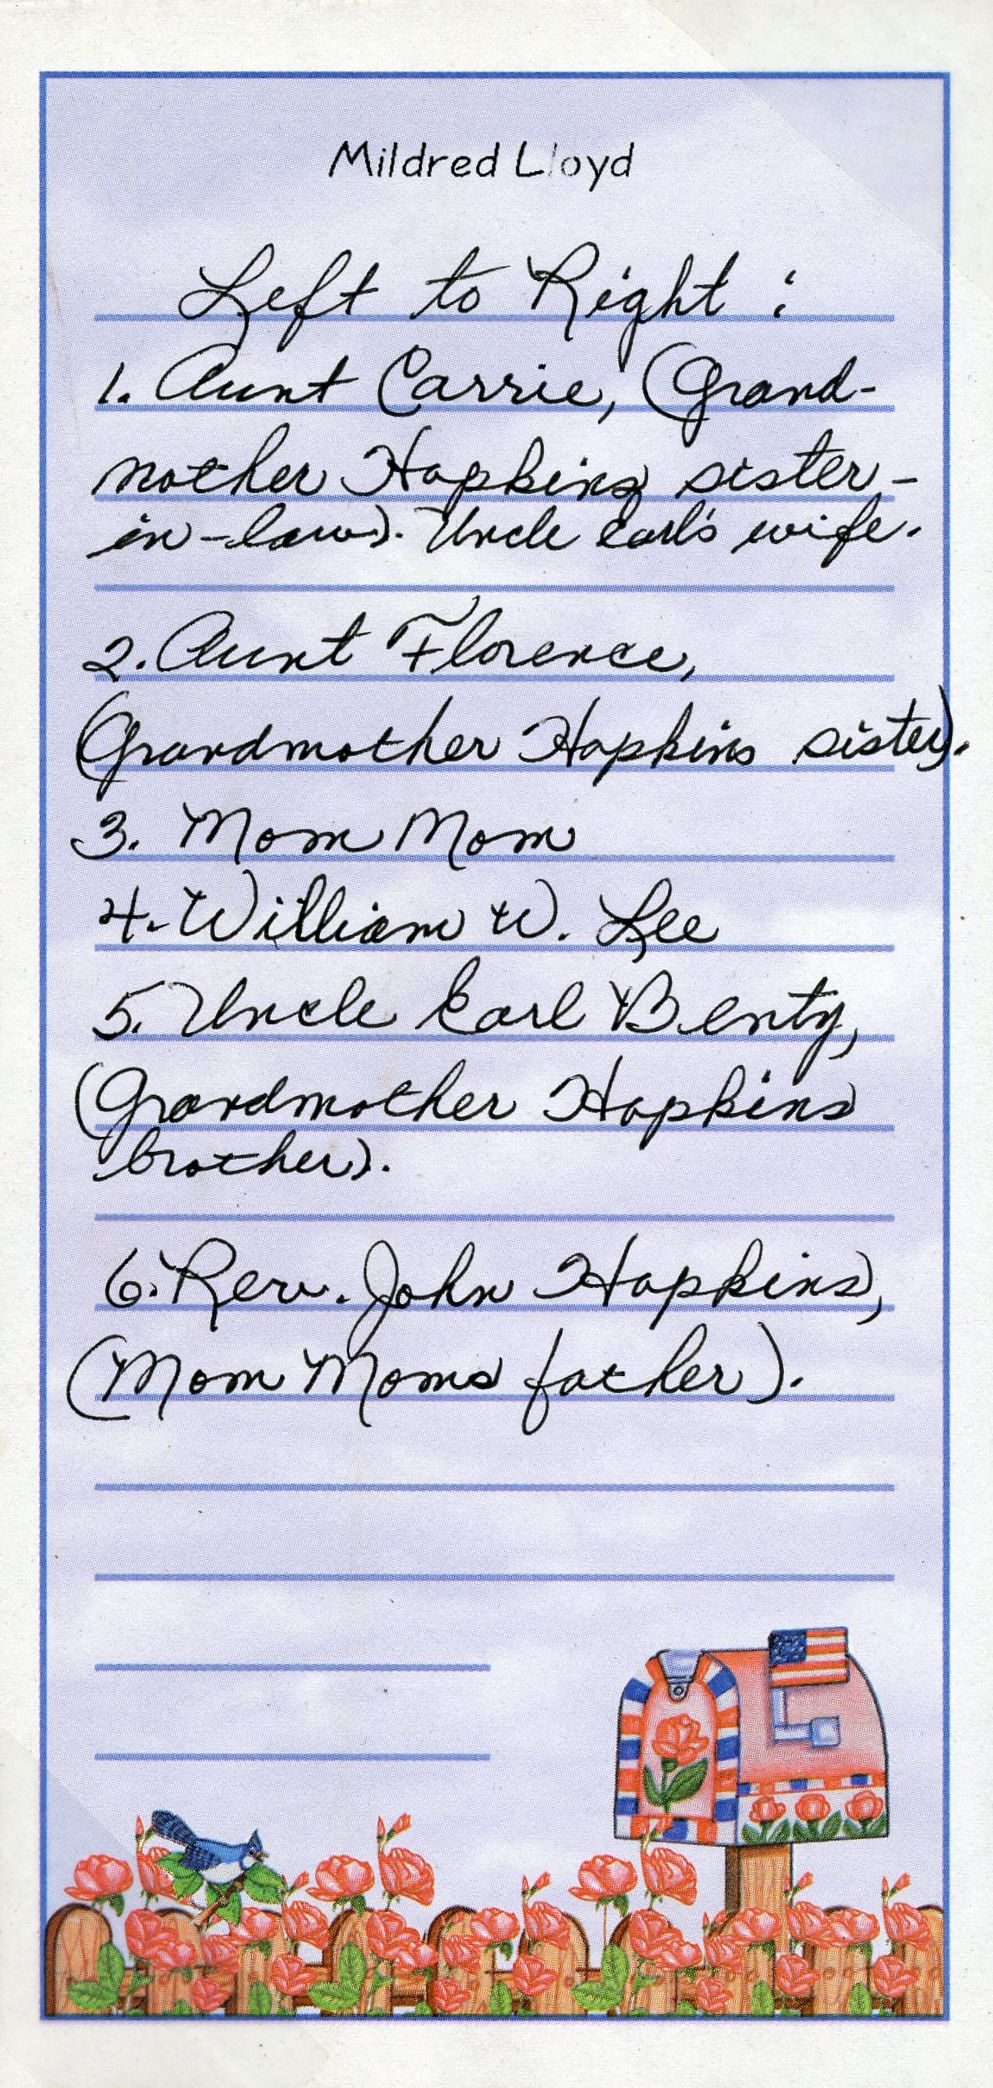 Mildred Lloyd
Left to Right :
1. Aunt Carrie, (Grand-
mother Hopkins sister-
in-law). Uncle Earl's wife.
2. Aunt Florence,
(Grandmother Hopkins sister).
3. Mom Mom
4. William W. Lee
5. Uncle Earl Benty,
(Grandmother Hopkins
brother).
6. Rev. John Hopkins,
(Mom Moms father).